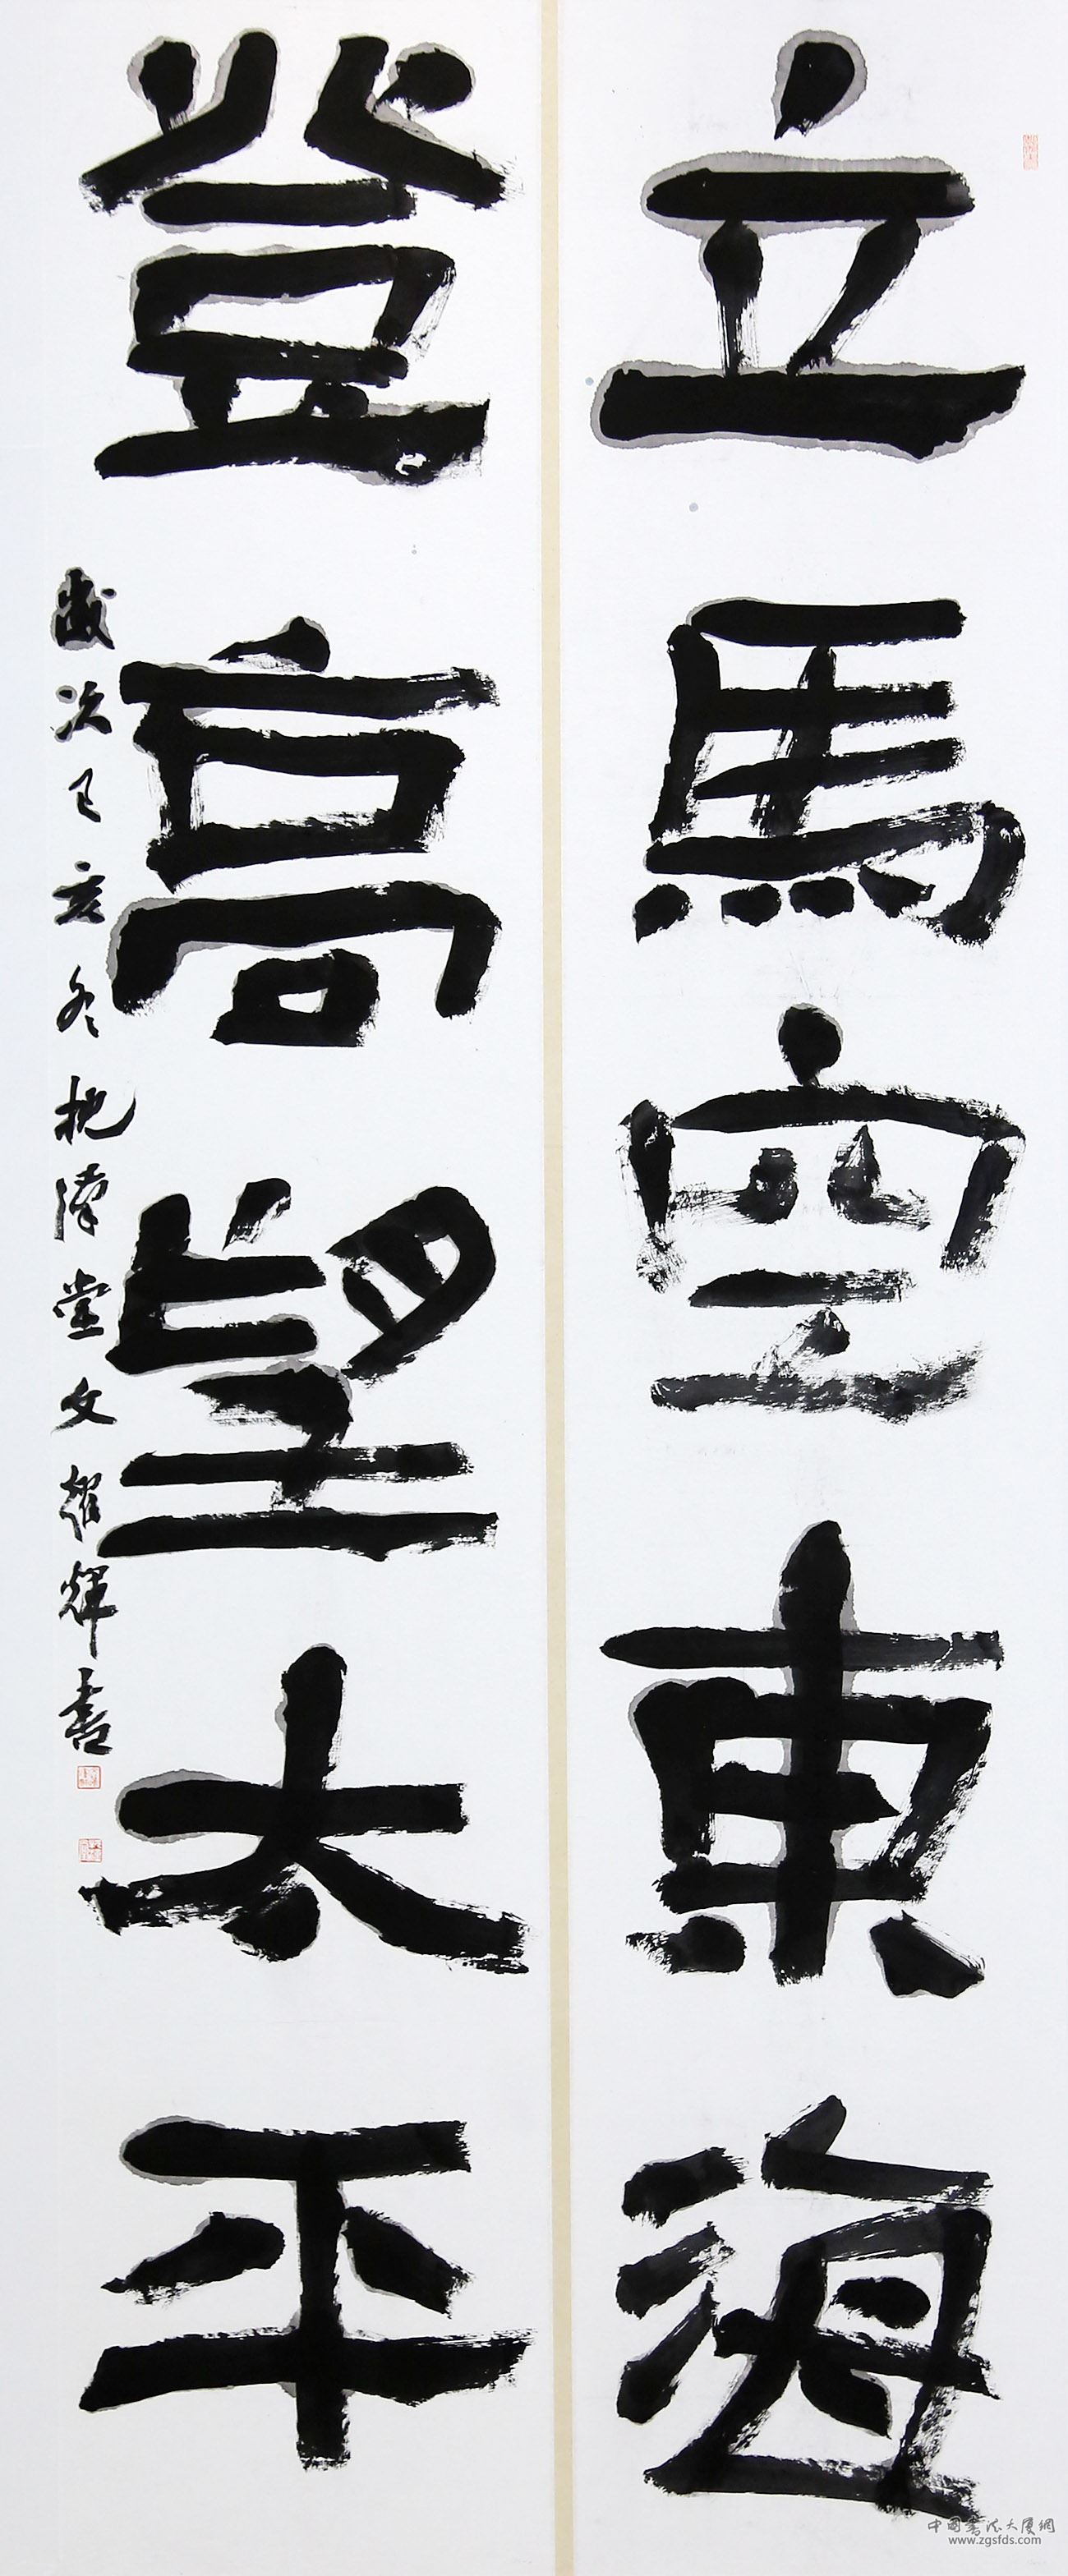 立馬空東海
登高望太平
歲次己亥冬堂文耀輝書
中國書法大厦網
www.zgsfds.com